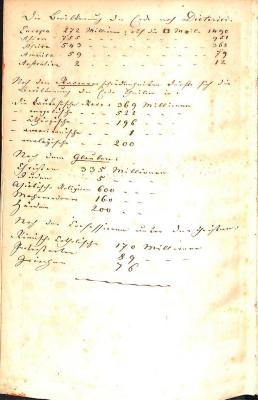 Die Bevölkerung der Erde nach Dieterici.
Europa 272 Millionen; auf die □ Meile 1490
Asien 755 - - - - 951
Afrika 543 - - - - 363
Amerika 59 - - - - 79
Australien 2 - - - - 12
Nach den Racenverschiedenheiten sich die
Bevölkerung der Erde
die kaukasische Race: 369 Millionen
- mongolische - 522 -
- äthiopische - 196 -
- amerikanische - 1 -
- malayische - 200
Nach dem Glauben:
Christen 335 Millionen
Juden 5 -
Asiatische Religion 600 -
Mahomedaner 160 -
Heiden 200 -
Nach den Confessionen unter den Christen:
Römisch Catholische 170 Millionen
Protestanten 89 -
Griechen 76